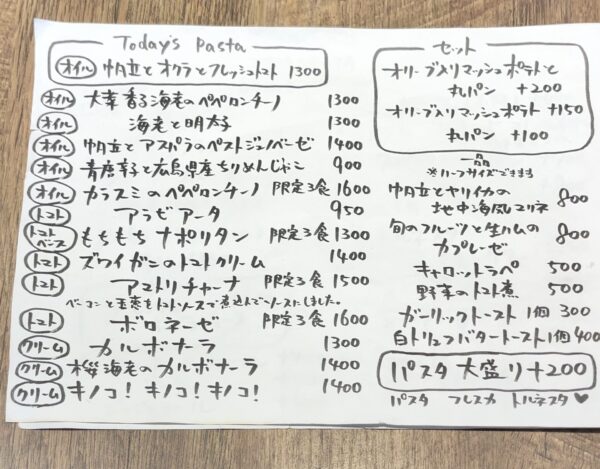 Today's Pasta
オイル 帆立とオクラとフレッシュトマト 1300
オイル 大葉香る海老のペペロンチーノ 1300
オイル 海老と明太子 1300
オイル 帆立とアスパラのペストジェノベーゼ 1400
オイル 青唐辛子と広島県産ちりめんじゃこ 900
オイル カラスミのペペロンチーノ 限定3食 1600
トマト アラビアータ 950
トマトベース もちもちナポリタン 限定3食 1300
トマト ズワイガニのトマトクリーム 1400
トマト アマトリチャーナ 限定3食 1500
ベーコンと玉葱をトマトソースで煮込んでソースにしました。
トマト ボロネーゼ 限定3食 1600
クリーム カルボナーラ 1300
クリーム 桜海老のカルボナーラ 1400
クリーム キノコ!キノコ!キノコ! 1400
セット
オリーブ入りマッシュポテトと
丸パン +200
オリーブ入りマッシュポテト +150
丸パン +100
一品
※ハーフサイズできます
帆立とヤリイカの
地中海風マリネ 800
旬のフルーツと生ハムの
カプレーゼ 800
キャロットラペ 500
野菜のトマト煮 500
ガーリックトースト 1個 300
白トリュフバタートースト 1個 400
パスタ 大盛り +200
パスタ フレスカ トルネスタ ♥